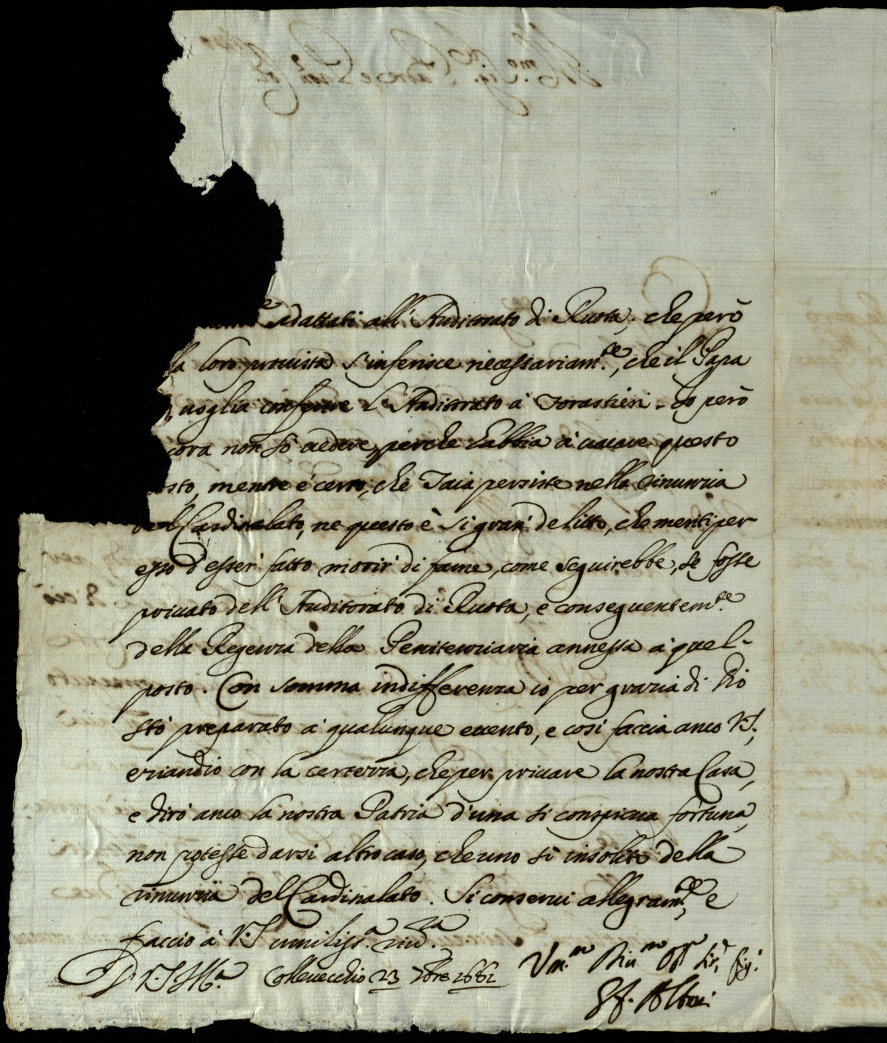 adattati all'Auditorato di Ruota; che però
la loro provista s'inferisce necessariam.te, che il Papa
voglia conferire l'Auditorato à forastieri. Io però
cora non sò credere, perche habbia à vacare questo
sto, mentre è certo, che Taia persiste nella rinunzia
del Cardinalato, ne questo è sì gran' delitto, che meriti per
esso d'esser' fatto morir' di fame, come seguirebbe, se fosse
privato dell'Auditorato di Ruota, e conseguentem.te
della Regenza della Penitenziaria annessa à quel
posto. Con somma indifferenza io per grazia di Dio
stò preparato à qualunque evento, e così faccia anco V.S.,
eziandio con la certezza, che per privare la nostra Casa,
e dirò anco la nostra Patria d'una sì conspicua fortuna,
non potesse darsi altro caso, che uno sì insolito della
rinunzia del Cardinalato. Si conservi allegram.te, e
faccio à V.S. umiliss.a riv.za
D. V.S. Ill.a Collevecchio 23 7bre 1681
Um.mo Div.mo
Albani